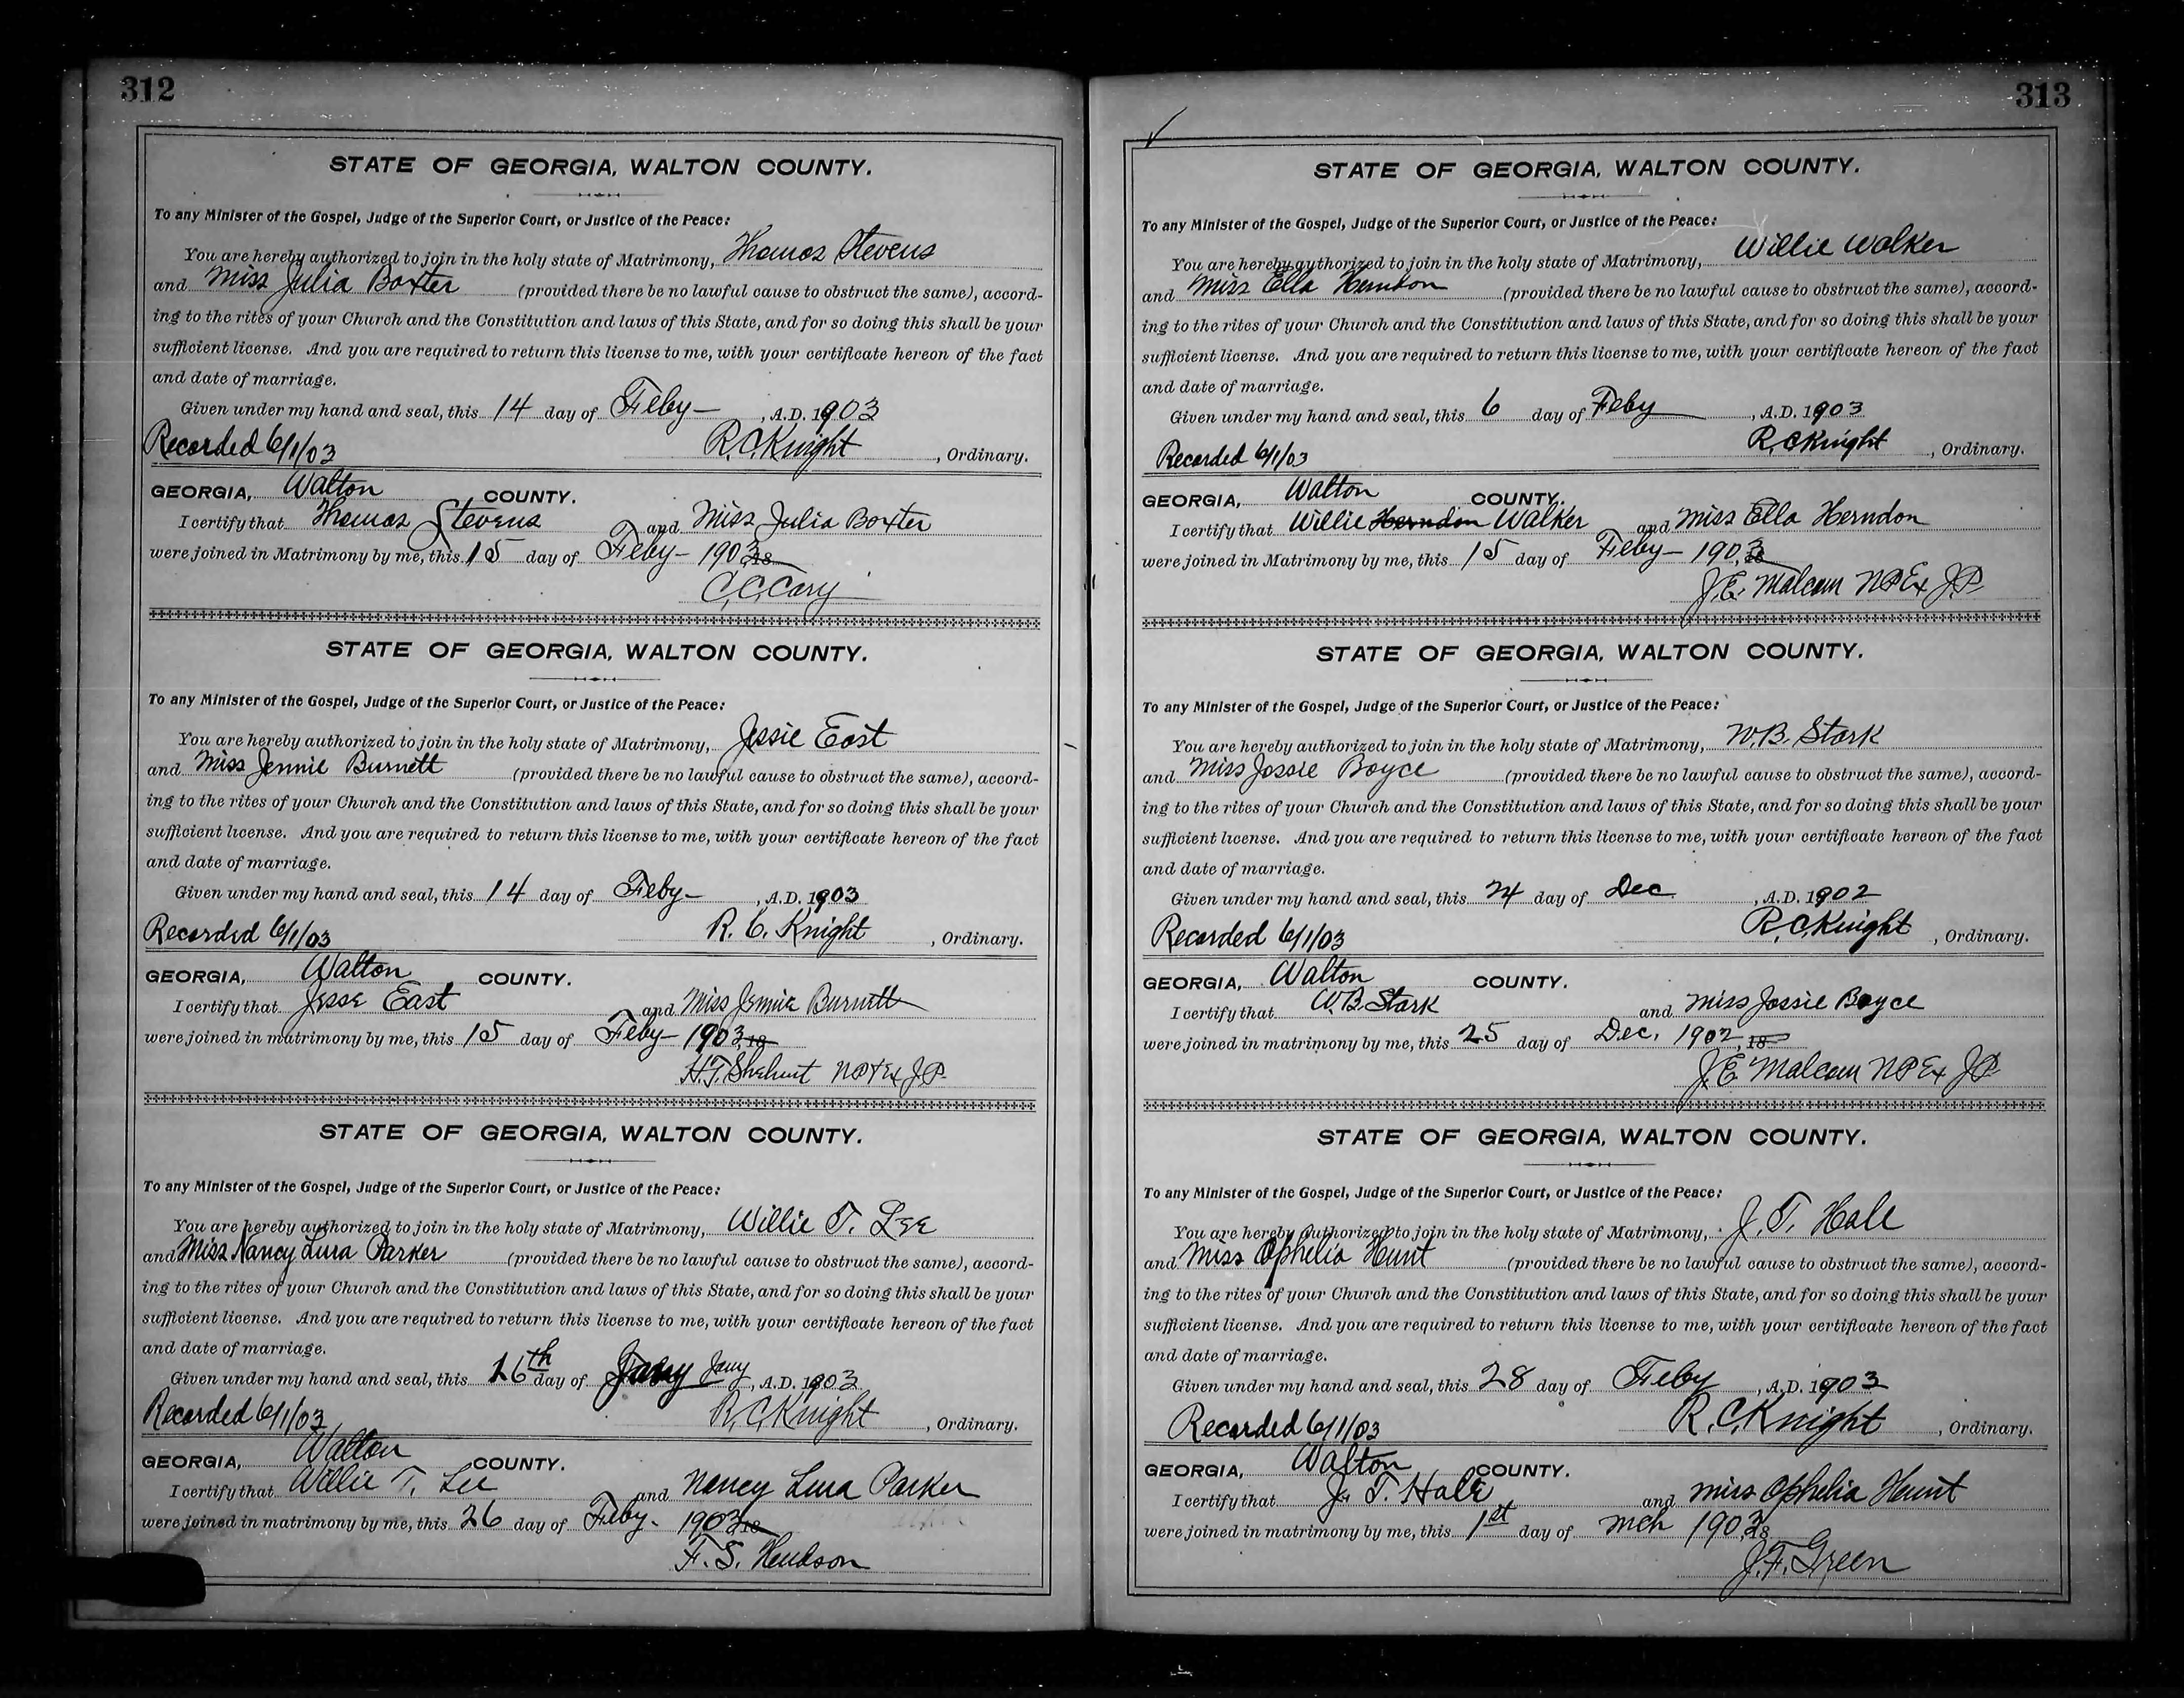 312
STATE OF GEORGIA, WALTON COUNTY.
To any Minister of the Gospel, Judge of the Superior Court, or Justice of the Peace:
You are hereby authorized to join in the holy state of Matrimony, Thomas Stevens
and Miss Julia Baxter (provided there be no lawful cause to obstruct the same), accord-
ing to the rites of your Church and the Constitution and laws of this State, and for so doing this shall be your
sufficient license. And you are required to return this license to me, with your certificate hereon of the fact
and date of marriage.
Given under my hand and seal, this 14 day of Feby- , A.D. 1903
Recorded 6/1/03 R.C. Knight , Ordinary.
GEORGIA, Walton COUNTY.
I certify that Thomas Stevens and Miss Julia Baxter
were joined in Matrimony by me, this 15 day of Feby- 1903 18
C.C. Cary
STATE OF GEORGIA, WALTON COUNTY.
To any Minister of the Gospel, Judge of the Superior Court, or Justice of the Peace:
You are hereby authorized to join in the holy state of Matrimony, Jessie East
and Miss Jennie Burnett (provided there be no lawful cause to obstruct the same), accord-
ing to the rites of your Church and the Constitution and laws of this State, and for so doing this shall be your
sufficient license. And you are required to return this license to me, with your certificate hereon of the fact
and date of marriage.
Given under my hand and seal, this 14 day of Feby- , A.D. 1903
Recorded 6/1/03 R. C. Knight , Ordinary.
GEORGIA, Walton COUNTY.
I certify that Jesse East and Miss Jennie Burnett
were joined in matrimony by me, this 15 day of Feby- 1903, 18
H.T. Shehut NP & Ex J.P.
STATE OF GEORGIA, WALTON COUNTY.
To any Minister of the Gospel, Judge of the Superior Court, or Justice of the Peace:
You are hereby authorized to join in the holy state of Matrimony, Willie T. Lee
and Miss Nancy Lura Parker (provided there be no lawful cause to obstruct the same), accord-
ing to the rites of your Church and the Constitution and laws of this State, and for so doing this shall be your
sufficient license. And you are required to return this license to me, with your certificate hereon of the fact
and date of marriage.
Given under my hand and seal, this 26th day of Jany , A.D. 1903
Recorded 6/1/03 R.C. Knight , Ordinary.
GEORGIA, Walton COUNTY.
I certify that Willie T. Lee and Nancy Lura Parker
were joined in matrimony by me, this 26 day of Feby. 1903 18
F. S. Hudson
313
STATE OF GEORGIA, WALTON COUNTY.
To any Minister of the Gospel, Judge of the Superior Court, or Justice of the Peace:
You are hereby authorized to join in the holy state of Matrimony, Willie Walker
and Miss Ella Herndon (provided there be no lawful cause to obstruct the same), accord-
ing to the rites of your Church and the Constitution and laws of this State, and for so doing this shall be your
sufficient license. And you are required to return this license to me, with your certificate hereon of the fact
and date of marriage.
Given under my hand and seal, this 6 day of Feby , A.D. 1903
Recorded 6/1/03 R.C. Knight , Ordinary.
GEORGIA, Walton COUNTY.
I certify that Willie Herndon Walker and Miss Ella Herndon
were joined in Matrimony by me, this 15 day of Feby- 1903
J.E. Malcom NP Ex J.P.
STATE OF GEORGIA, WALTON COUNTY.
To any Minister of the Gospel, Judge of the Superior Court, or Justice of the Peace:
You are hereby authorized to join in the holy state of Matrimony, W.B. Stark
and Miss Jossie Boyce (provided there be no lawful cause to obstruct the same), accord-
ing to the rites of your Church and the Constitution and laws of this State, and for so doing this shall be your
sufficient license. And you are required to return this license to me, with your certificate hereon of the fact
and date of marriage.
Given under my hand and seal, this 24 day of Dec , A.D. 1902
Recorded 6/1/03 R.C. Knight , Ordinary.
GEORGIA, Walton COUNTY.
I certify that W.B. Stark and Miss Jossie Boyce
were joined in matrimony by me, this 25 day of Dec. 1902, 18
J.E. Malcom NP Ex J.P.
STATE OF GEORGIA, WALTON COUNTY.
To any Minister of the Gospel, Judge of the Superior Court, or Justice of the Peace:
You are hereby authorized to join in the holy state of Matrimony, J. T. Hale
and Miss Ophelia Hunt (provided there be no lawful cause to obstruct the same), accord-
ing to the rites of your Church and the Constitution and laws of this State, and for so doing this shall be your
sufficient license. And you are required to return this license to me, with your certificate hereon of the fact
and date of marriage.
Given under my hand and seal, this 28 day of Feby , A.D. 1903
Recorded 6/1/03 R.C. Knight , Ordinary.
GEORGIA, Walton COUNTY.
I certify that J. T. Hale and Miss Ophelia Hunt
were joined in matrimony by me, this 1st day of Mch 1903, 18
J.F. Green